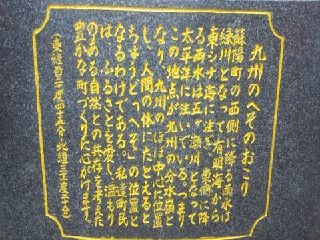 九州のへそのおこり
蘇陽町の西側に降る雨水は
緑川となって有明海から
東シナ海に注ぎ、東側に降
る雨水は五ヶ瀬川となって
太平洋に注いでいる。つまり
この地点が九州の分水嶺と
なり、九州のほぼ中心に位置
し、人間の体にたとえると
ちょうど「へそ」の位置と
なるわけである。私達町民
は、ふるさとを愛し、温もり
のある自然との共存を考えた
豊かな町づくりに心がけます。
(東経百三十一度四十五分 北緯三十二度)